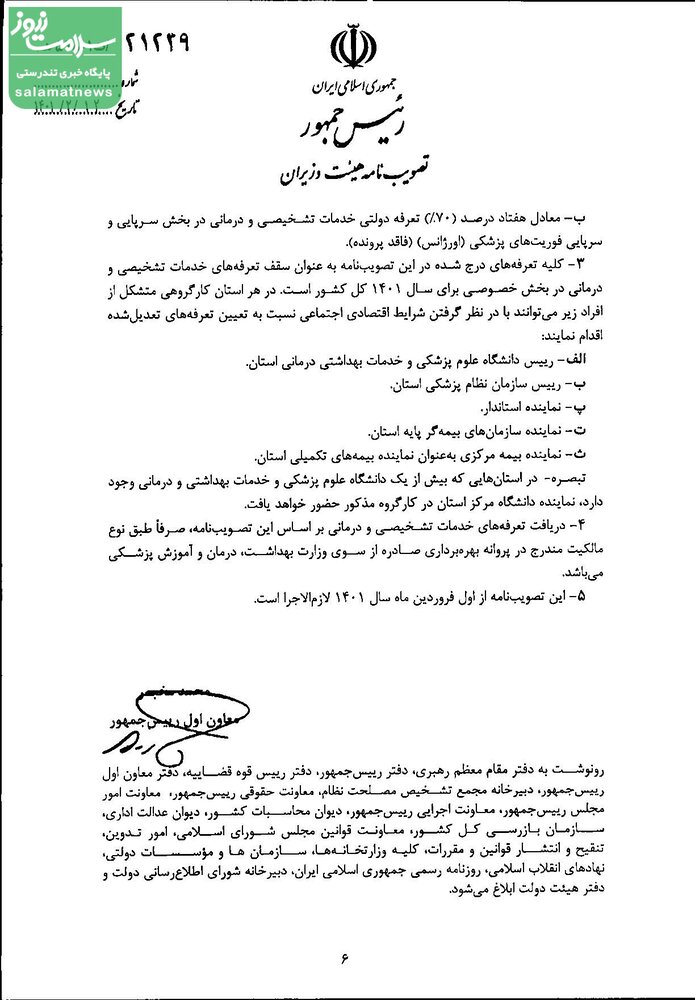 سلامت نیوز
پایگاه خبری تندرستی
salamatnews
۲۱۲۴۹
شماره
تاریخ ۱۴۰۱/۲/۰۱۲
جمهوری اسلامی ایران
رئیس جمهور
تصویب نامه هیئت وزیران
ب- معادل هفتاد درصد (۷۰٪) تعرفه دولتی خدمات تشخیصی و درمانی در بخش سرپایی و
سرپایی فوریت‌های پزشکی (اورژانس) (فاقد پرونده).
۳- کلیه تعرفه‌های درج شده در این تصویب‌نامه به عنوان سقف تعرفه‌های خدمات تشخیصی و
درمانی در بخش خصوصی برای سال ۱۴۰۱ کل کشور است. در هر استان کارگروهی متشکل از
افراد زیر می‌توانند با در نظر گرفتن شرایط اقتصادی اجتماعی نسبت به تعیین تعرفه‌های تعدیل‌شده
اقدام نمایند:
الف- رییس دانشگاه علوم پزشکی و خدمات بهداشتی درمانی استان.
ب- رییس سازمان نظام پزشکی استان.
پ- نماینده استاندار.
ت- نماینده سازمان‌های بیمه‌گر پایه استان.
ث- نماینده بیمه مرکزی به‌عنوان نماینده بیمه‌های تکمیلی استان.
تبصره- در استان‌هایی که بیش از یک دانشگاه علوم پزشکی و خدمات بهداشتی و درمانی وجود
دارد، نماینده دانشگاه مرکز استان در کارگروه مذکور حضور خواهد یافت.
۴- دریافت تعرفه‌های خدمات تشخیصی و درمانی بر اساس این تصویب‌نامه، صرفاً طبق نوع
مالکیت مندرج در پروانه بهره‌برداری صادره از سوی وزارت بهداشت، درمان و آموزش پزشکی
می‌باشد.
۵- این تصویب‌نامه از اول فروردین ماه سال ۱۴۰۱ لازم‌الاجرا است.
محمد مخبر
معاون اول رییس‌جمهور
رونوشت به دفتر مقام معظم رهبری، دفتر رییس‌جمهور، دفتر رییس قوه قضاییه، دفتر معاون اول
رییس‌جمهور، دبیرخانه مجمع تشخیص مصلحت نظام، معاونت حقوقی رییس‌جمهور، معاونت امور
مجلس رییس‌جمهور، معاونت اجرایی رییس‌جمهور، دیوان محاسبات کشور، دیوان عدالت اداری،
سازمان بازرسی کل کشور، معاونت قوانین مجلس شورای اسلامی، امور تدوین،
تنقیح و انتشار قوانین و مقررات، کلیه وزارتخانه‌ها، سازمان ها و مؤسسات دولتی،
نهادهای انقلاب اسلامی، روزنامه رسمی جمهوری اسلامی ایران، دبیرخانه شورای اطلاع‌رسانی دولت و
دفتر هیئت دولت ابلاغ می‌شود.
۶